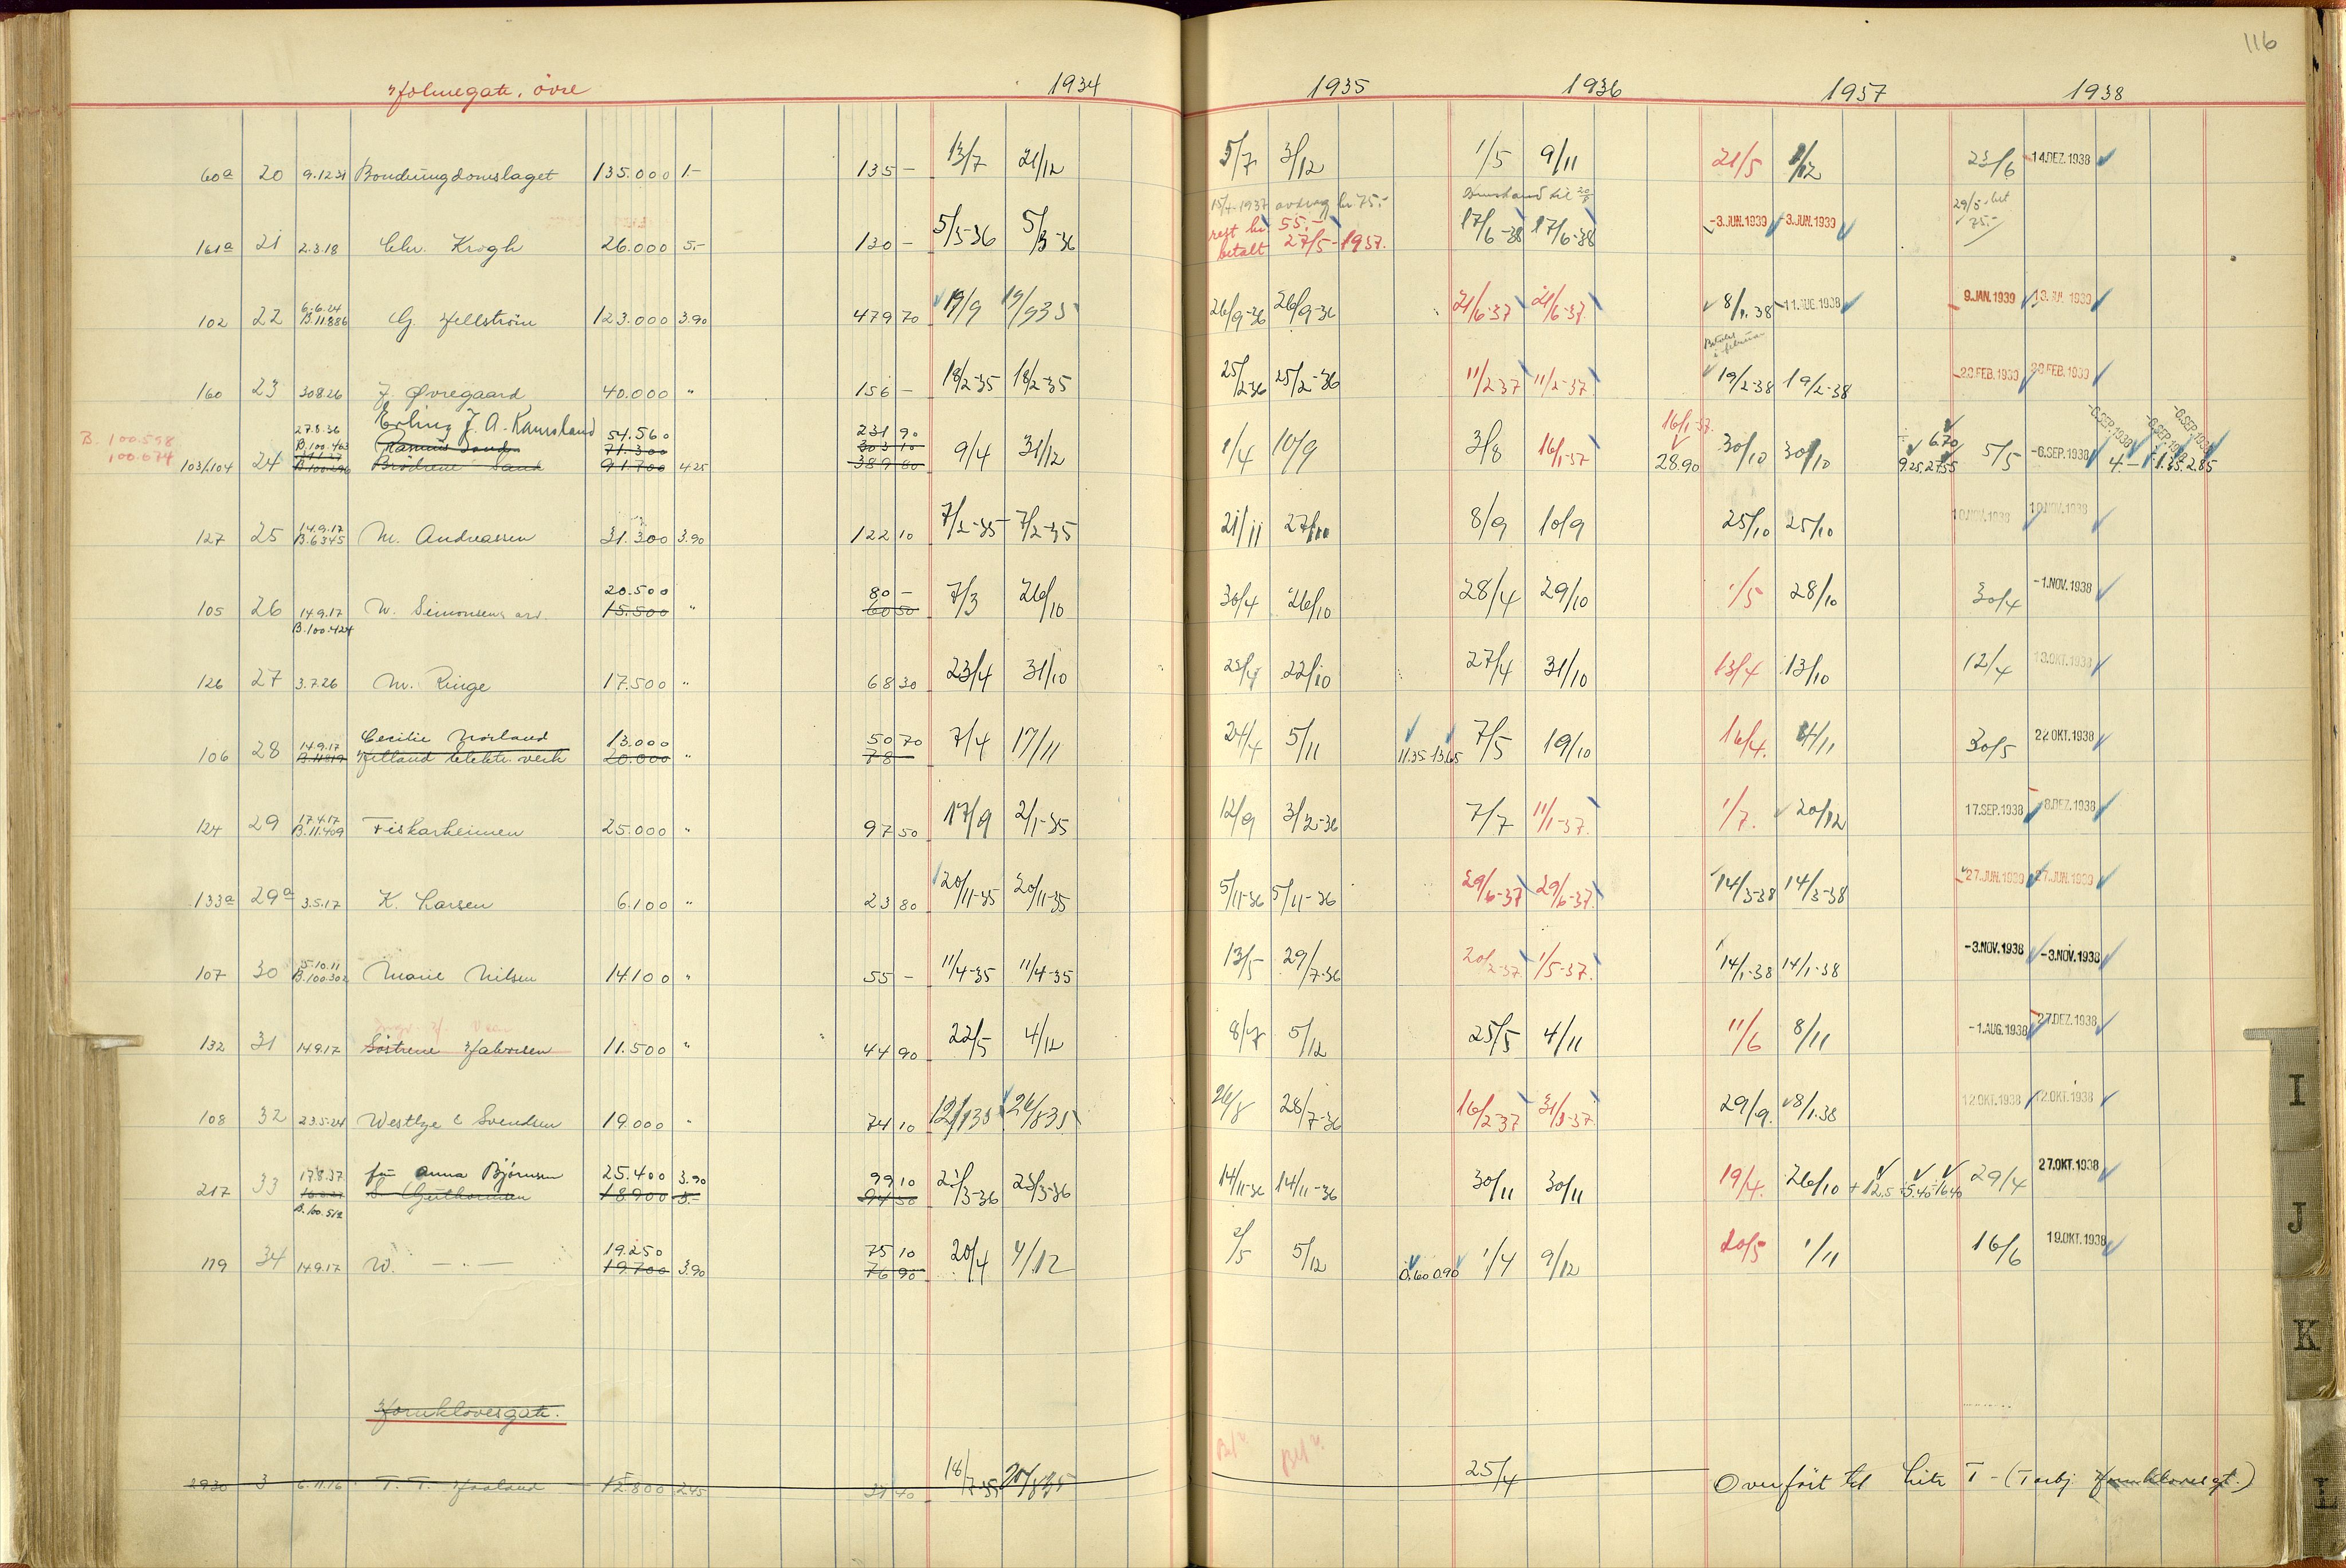 116
Holmegate, övre 1934 1935 1936 1937 1938
60a 20 9.12.31 Bondeungdomslaget 135.000 1.- 135 - 13/7 21/12 5/7 3/12 1/5 9/11 21/5 2/12 23/6 14.DEZ.1938
15/4-1937 avdrag kr 75.- 29/5 bet
161a 21 2.3.18 Chr. Krogh 26.000 5.- 130 - 5/3-36 5/3-36 rest kr 55.- 17/6-38 17/6-38 -3.JUN.1939 -3.JUN.1939 25.-
betalt 27/5-1937.
6.6.24
102 22 B.11.886 G. Hellström 123.000 3.90 479 70 19/9 19/9 35 26/9-36 26/9-36 21/6-37 21/6-37 8/1.38 -11.AUG.1938 9.JAN.1939 13.JUL.1939
Betalt i februar
160 23 30.8.26 J. Øvregaard 40.000 " 156 - 18/2-35 18/2-35 25/2-36 25/2-36 11/2-37 11/2-37 19/2-38 19/2-38 -20.FEB.1939 20.FEB.1939
Erling J. A. Ramsland
B. 100.598 27.8.36 54.560 231 90 16/1-37 6.70 -6.SEP.1938 -6.SEP.1938 -6.SEP.1938
100.674 B.100.463 Rasmus Sand 71.300 303 10
103/104 24 B.100.296 Brödrene Sand 91.700 4.25 389 80 9/4 31/12 1/4 10/9 3/8 16/1-37 28.90 30/10 30/10 9.25 27.55 5/5 -6.SEP.1938 4.- 1.35 2.85
14.9.17
127 25 B.6345 M. Andreassen 31.300 3.90 122 10 7/2-35 7/2-35 21/11 27/10 8/9 10/9 25/10 25/10 10.NOV.1938 10.NOV.1938
20.500 80 -
105 26 14.9.17 W. Simonsens arv. 15.500 " 60 50 7/3 26/10 30/4 26/10 28/4 29/10 1/5 28/10 30/4 -1.NOV.1938
B.100.424
126 27 3.7.26 M. Ringe 17.500 " 68 30 23/4 31/10 22/4 22/10 27/4 31/10 13/4 13/10 12/4 13.OKT.1938
14.9.17 Cecilie Norland 13.000 50 70
106 28 B.11819 Jelland elektr. verk 20.000 " 78 7/4 17/11 24/4 5/11 11.35 13.65 7/5 19/10 16/4. 4/11 30/5 22.OKT.1938
17.4.17
124 29 B.11.409 Fiskarheimen 25.000 " 97 50 17/9 2/1-35 12/9 3/2-36 7/7 11/1-37. 1/7. 20/12 17.SEP.1938 -8.DEZ.1938
133a 29a 3.5.17 K. Larsen 6.100 " 23 80 20/11-35 20/11-35 5/11-36 5/11-36 29/6-37 29/6-37. 14/3-38 14/3-38 27.JUN.1939 27.JUN.1939
5.10.11
107 30 B.100.302 Marie Nilsen 14.100 " 55 - 11/4-35 11/4-35 13/5 29/7-36 20/2-37 1/5-37. 14/1-38 14/1-38 -3.NOV.1938 -3.NOV.1938
132 31 14.9.17 Söstrene Halvorsen 11.500 " 44 90 22/5 4/12 8/7 5/12 25/5 4/11 11/6 8/11 -1.AUG.1938 27.DEZ.1938
108 32 23.5.24 Westlye & Svendsen 19.000 " 74 10 12/1 35 26/8 35 26/8 28/7-36 16/2-37 31/3-37. 29/9. 8/1.38 12.OKT.1938 12.OKT.1938
17.8.37 frü Anna Björnsen 25.400 3.90 99 10 27.OKT.1938
217 33 S. Guthormsen 18.900 5.- 94 50 23/3-36 23/3-36 14/11-36 14/11-36 30/11 30/11 19/4. 26/10 + 12.5 5.40 16.40 29/4
B.100.512
19.250 75 10
119 34 14.9.17 W. -"- 19.700 3.90 76 90 20/4 4/12 2/5 5/12 0.60 0.90 1/4 9/12 20/5 1/11 16/6 19.OKT.1938
Hornklovesgate.
2930 3 6.11.16 T. T. Haaland 12.800 2.45 31 40 18/7-35 20/8 35 25/4 Overfört til Litr T - (Torbj. Hornklovesgt.)
I
J
K
L